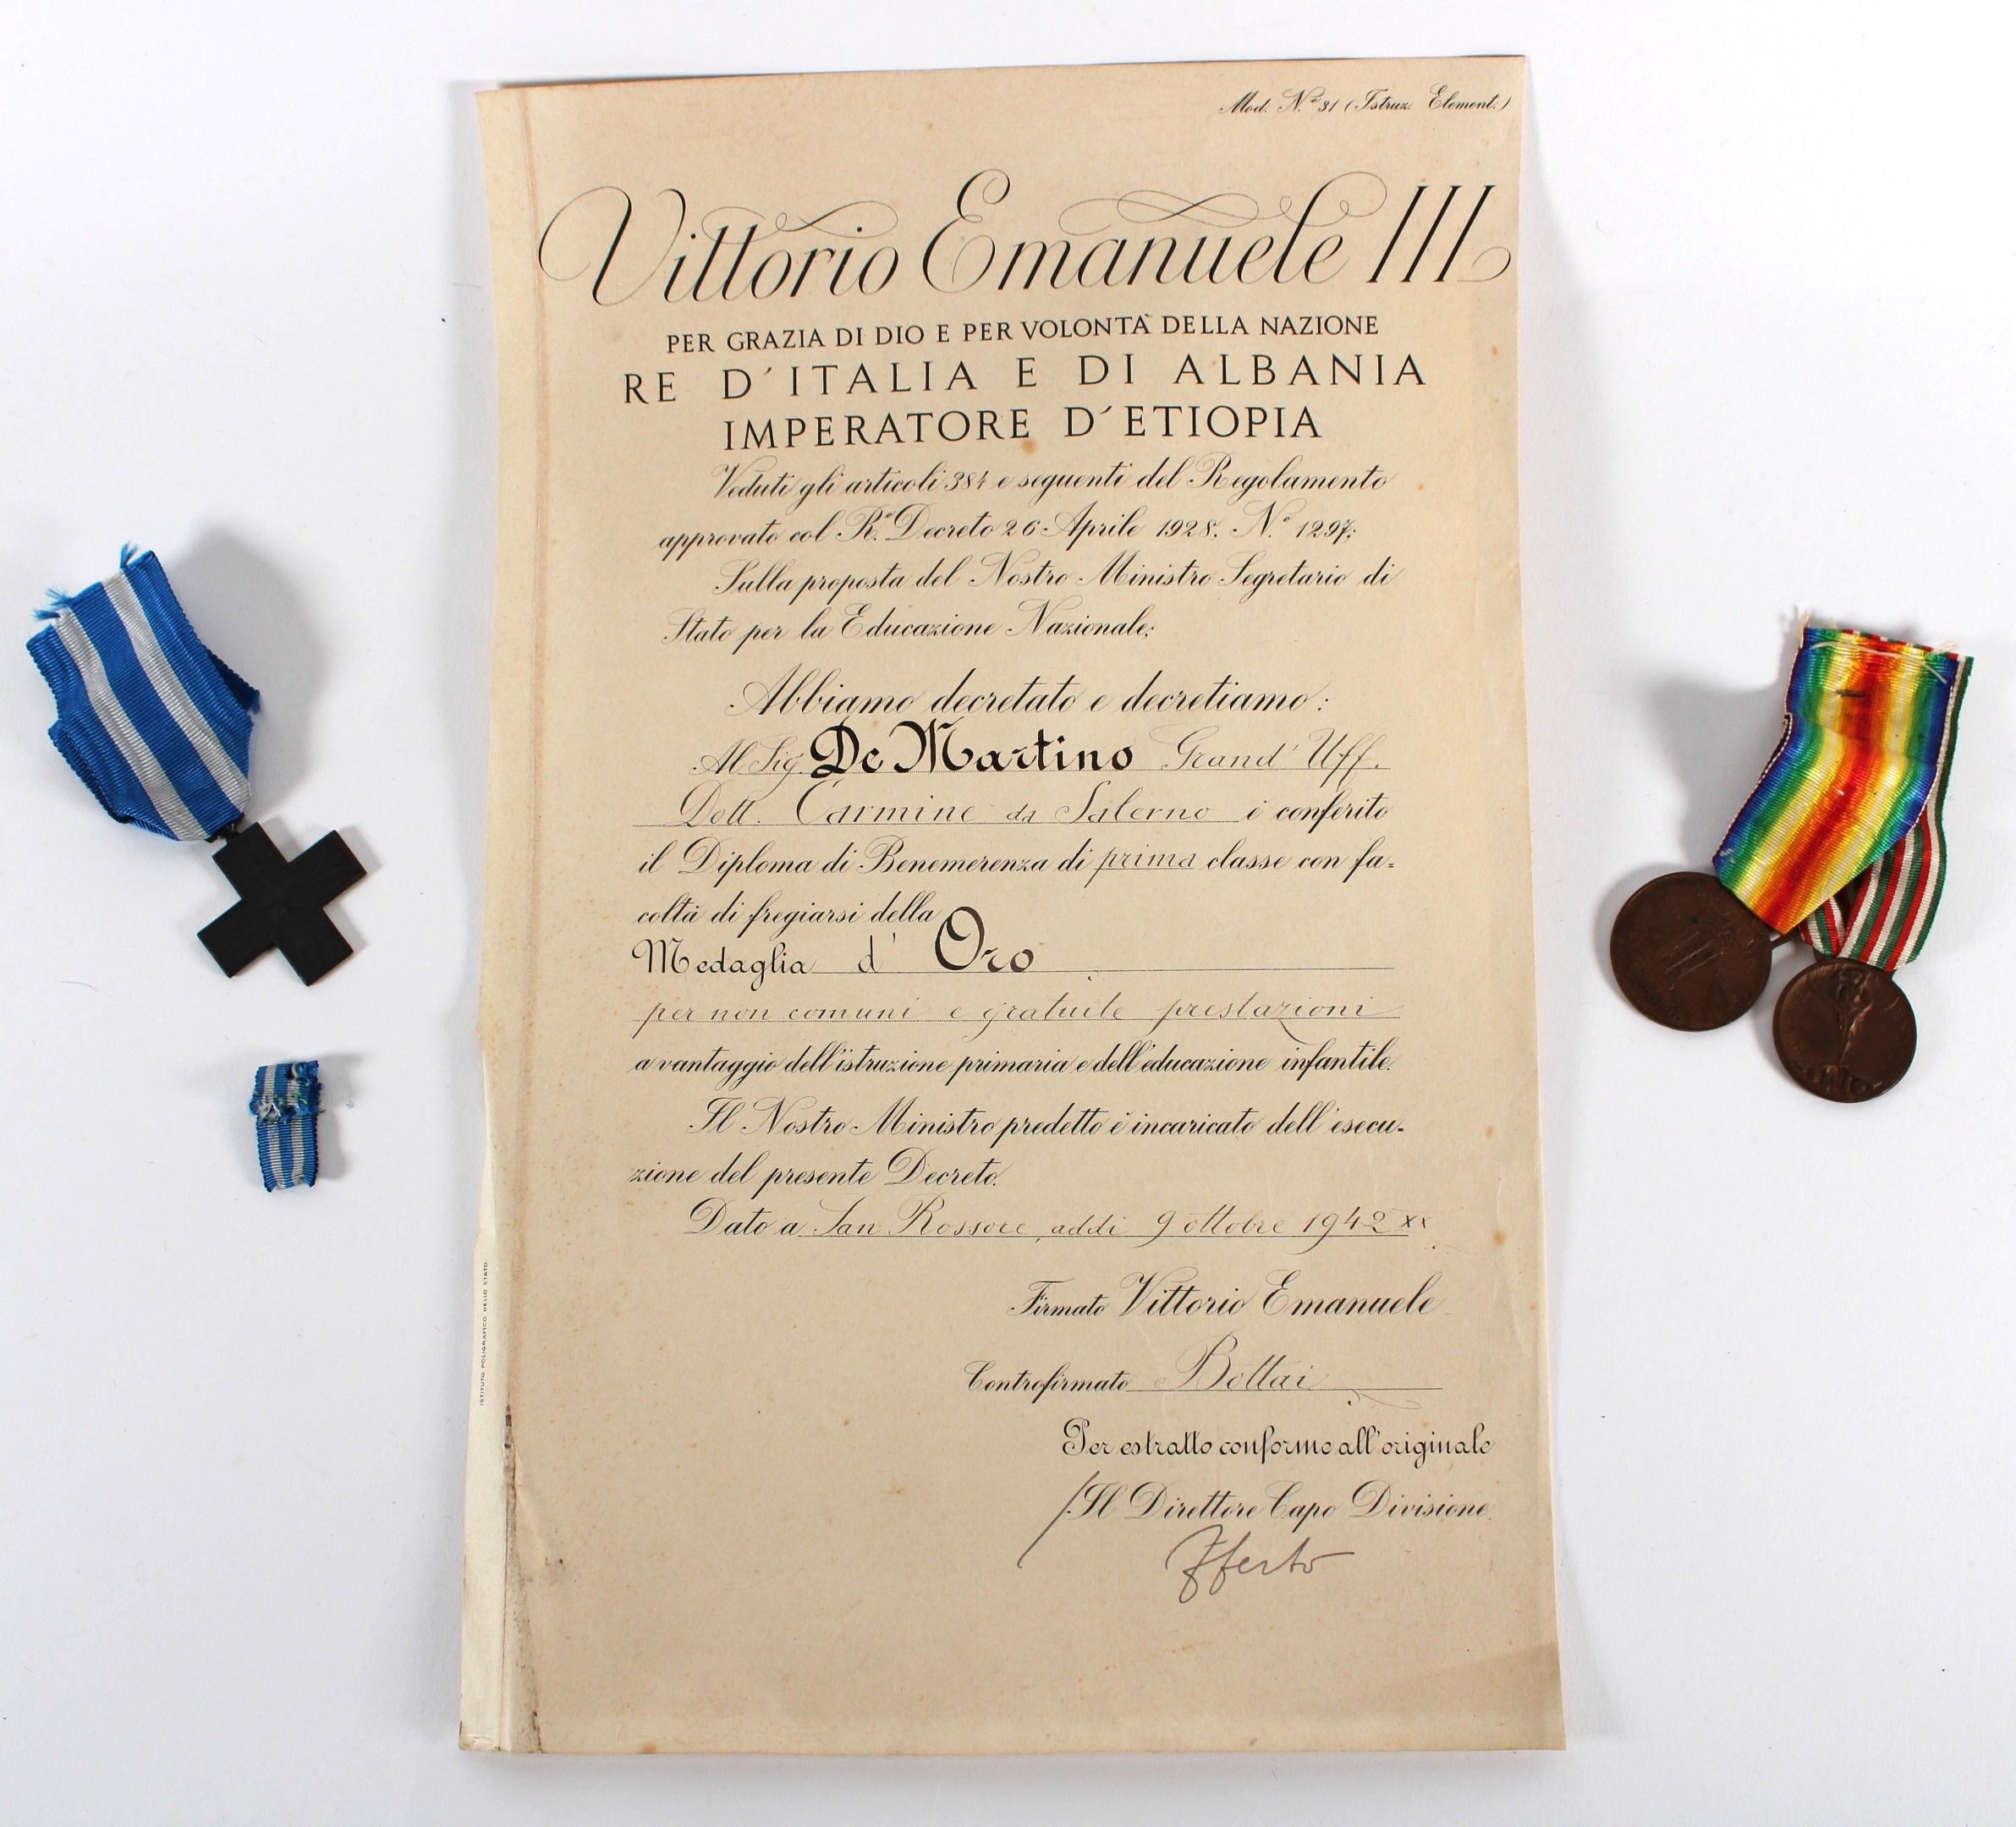 Mod. N.º 31 (Istruz. Element.)
Vittorio Emanuele III
PER GRAZIA DI DIO E PER VOLONTÀ DELLA NAZIONE
RE D'ITALIA E DI ALBANIA
IMPERATORE D'ETIOPIA
Veduti gli articoli 384 e seguenti del Regolamento
approvato col R.º Decreto 26 Aprile 1928, N.º 1297;
Sulla proposta del Nostro Ministro Segretario di
Stato per la Educazione Nazionale;
Abbiamo decretato e decretiamo:
Al Sig. De Martino Grand' Uff.
Dott. Carmine da Salerno è conferito
il Diploma di Benemerenza di prima classe con fa=
coltà di fregiarsi della
Medaglia d' Oro
per non comuni e gratuite prestazioni
a vantaggio dell'istruzione primaria e dell'educazione infantile.
Il Nostro Ministro predetto è incaricato dell'esecu-
zione del presente Decreto.
Dato a San Rossore, addì 9 ottobre 1942 XX
Firmato Vittorio Emanuele
Controfirmato Bottai
Per estratto conforme all'originale
Il Direttore Capo Divisione
ISTITUTO POLIGRAFICO DELLO STATO